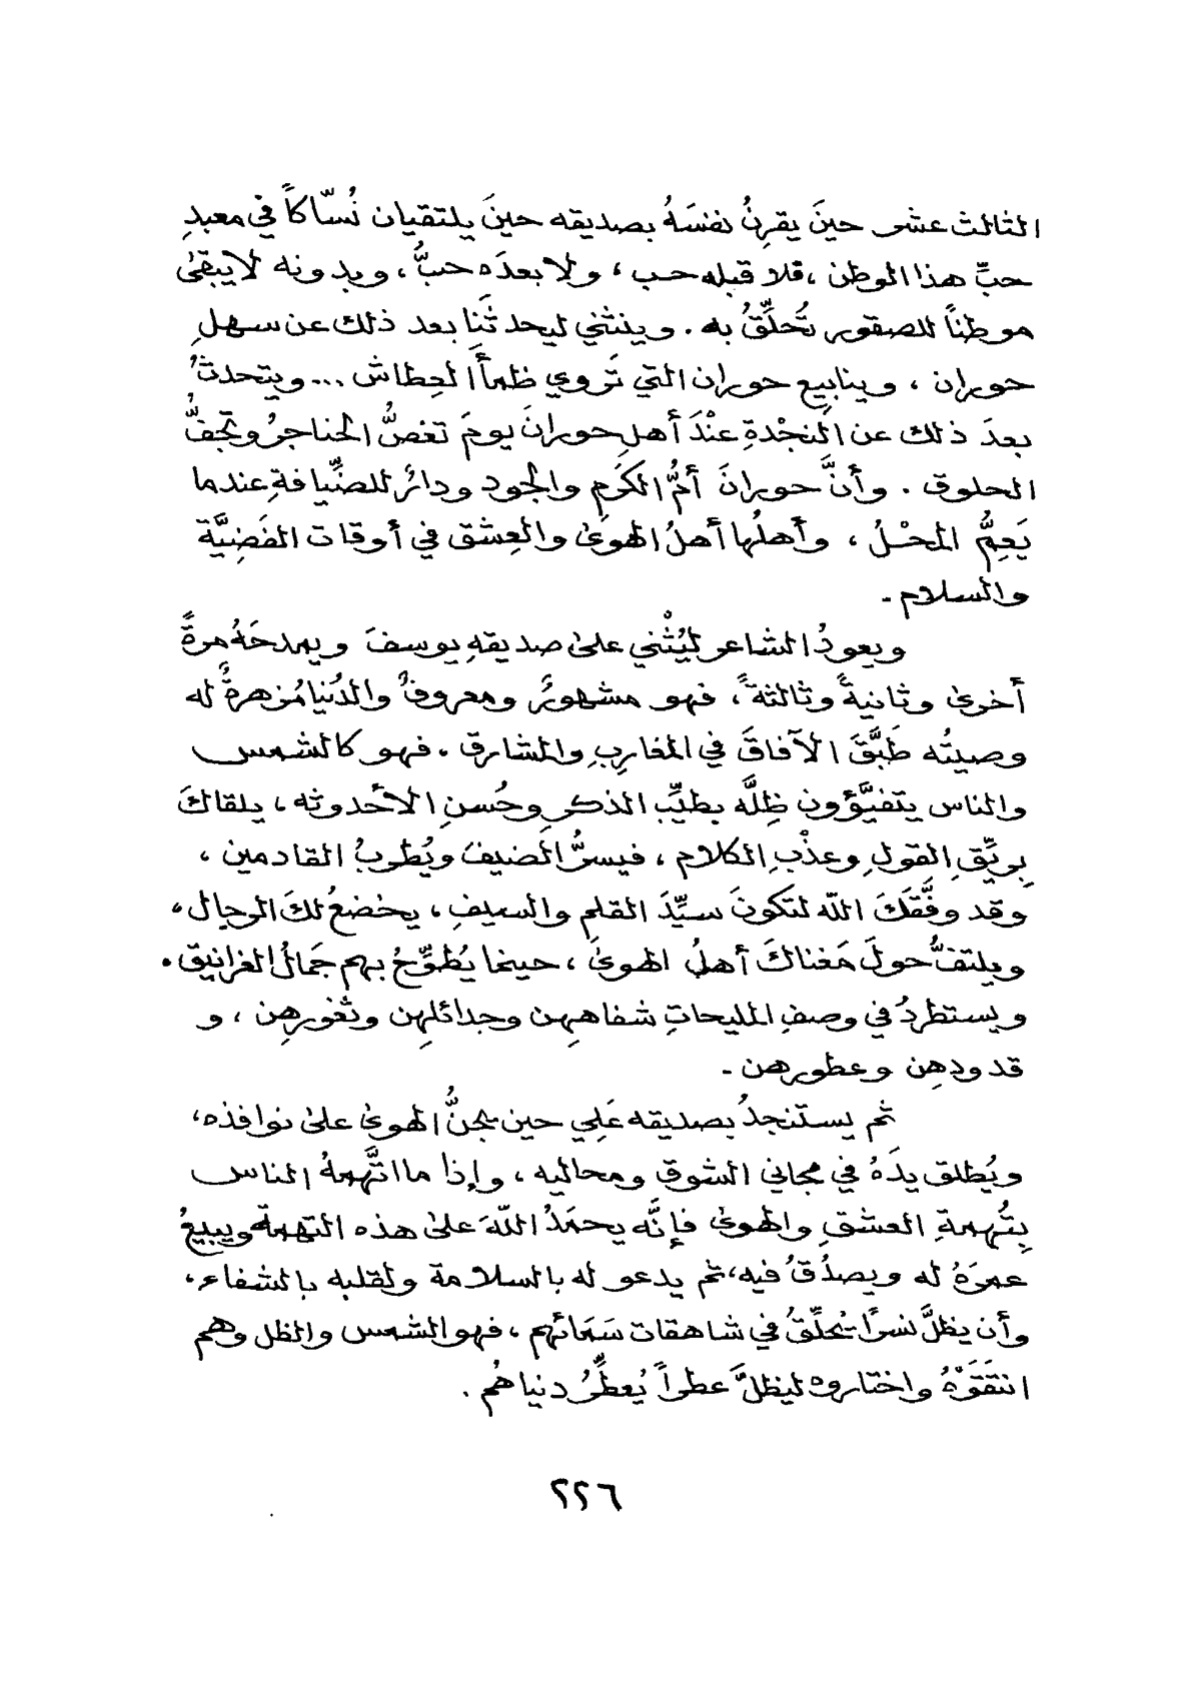 الثالث عشر حينَ يقرِنُ نفسَهُ بصديقه حينَ يلتقيان نُسّاكاً في معبدِ
حبِّ هذا الوطن ، فلا قبله حب ، ولا بعدَه حبُّ ، وبدونه لا يبقىٰ
موطناً للصقور تُحلِّقُ به . وينثني ليحدثَنا بعد ذلك عن سهلِ
حوران ، وينابيع حوران التي تَروي ظمأَ العِطاش ... ويتحدثُ
بعدَ ذلك عن النجْدةِ عنْدَ أهلِ حورانَ يومَ تغصُّ الحناجرُ وتجفُّ
الحلوق . وأنَّ حورانَ أمُّ الكَرَمِ والجود ودائرٌ للضِّيافةِ عندما
يَعِمُّ المحْلُ ، وأهلُها أهلُ الهوىٰ والعِشق في أوقات الفَضِيَّة
والسلام .
ويعودُ الشاعر ليُثْني علىٰ صديقهِ يوسفَ ويمدحَهُ مرةً
أخرىٰ وثانيةً وثالثةً ، فهو مشهورٌ ومعروفٌ والدُنيا مُزهرةٌ له
وصيتُه طَبَّقَ الآفاقَ في المغاربِ والمشارق . فهو كالشمس
والناس يتفيَّؤون ظِلَّه بطيِّب الذكرِ وحُسنِ الأحدوثه ، يلقاكَ
بِريِّقِ القولِ وعذْبِ الكلام ، فيسرُّ الضيفَ ويُطربُ القادمين ،
وقد وفَّقَكَ اللّه لتكونَ سيِّدَ القلمِ والسيفِ ، يخضعُ لكَ الرجال ،
ويلتفُّ حولَ مَغناكَ أهلُ الهوىٰ ، حينما يُطوِّحُ بهم جَمالُ الغرانيق .
ويستطردُ في وصفِ المليحاتِ شفاههِن وجدائلِهن وثغورهِن ، و
قدودهِن وعطورهن .
ثم يستنجدُ بصديقه عَلِي حين يجنُّ الهوىٰ علىٰ نوافذه ،
ويُطلق يدَهُ في مجاني الشوق ومحاليه ، وإذا ما اتَّهمهُ الناس
بِتُهمةِ العشقِ والهوىٰ فإنَّه يحمَدُ اللّهَ علىٰ هذه التهمة ويبيعُ
عمرَهُ له ويصدُقُ فيه ، ثم يدعو له بالسلامة ولقلبه بالشفاء ،
وأن يظلَّ نسراً يُحلِّقُ في شاهقات سَمَائهم ، فهو الشمس والظل وهم
انتقَوْهُ واختاروه ليظلَّ عطراً يُعطِّرُ دنياهُم .
٢٢٦